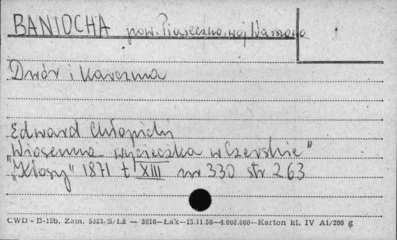 BANIOCHA pow. Piaseczno, woj Warszawa
Dwór i Karczma
Edward Chłopicki
"Wiosenna wycieczka w Czerskie"
"Kłosy" 1871 t XIII nr 330 str 263
CWD - D-15b. Zam. 5211/S/Łż — 2016—Łak—15.11.56—4.000.000—Karton kl. IV A1/200 g